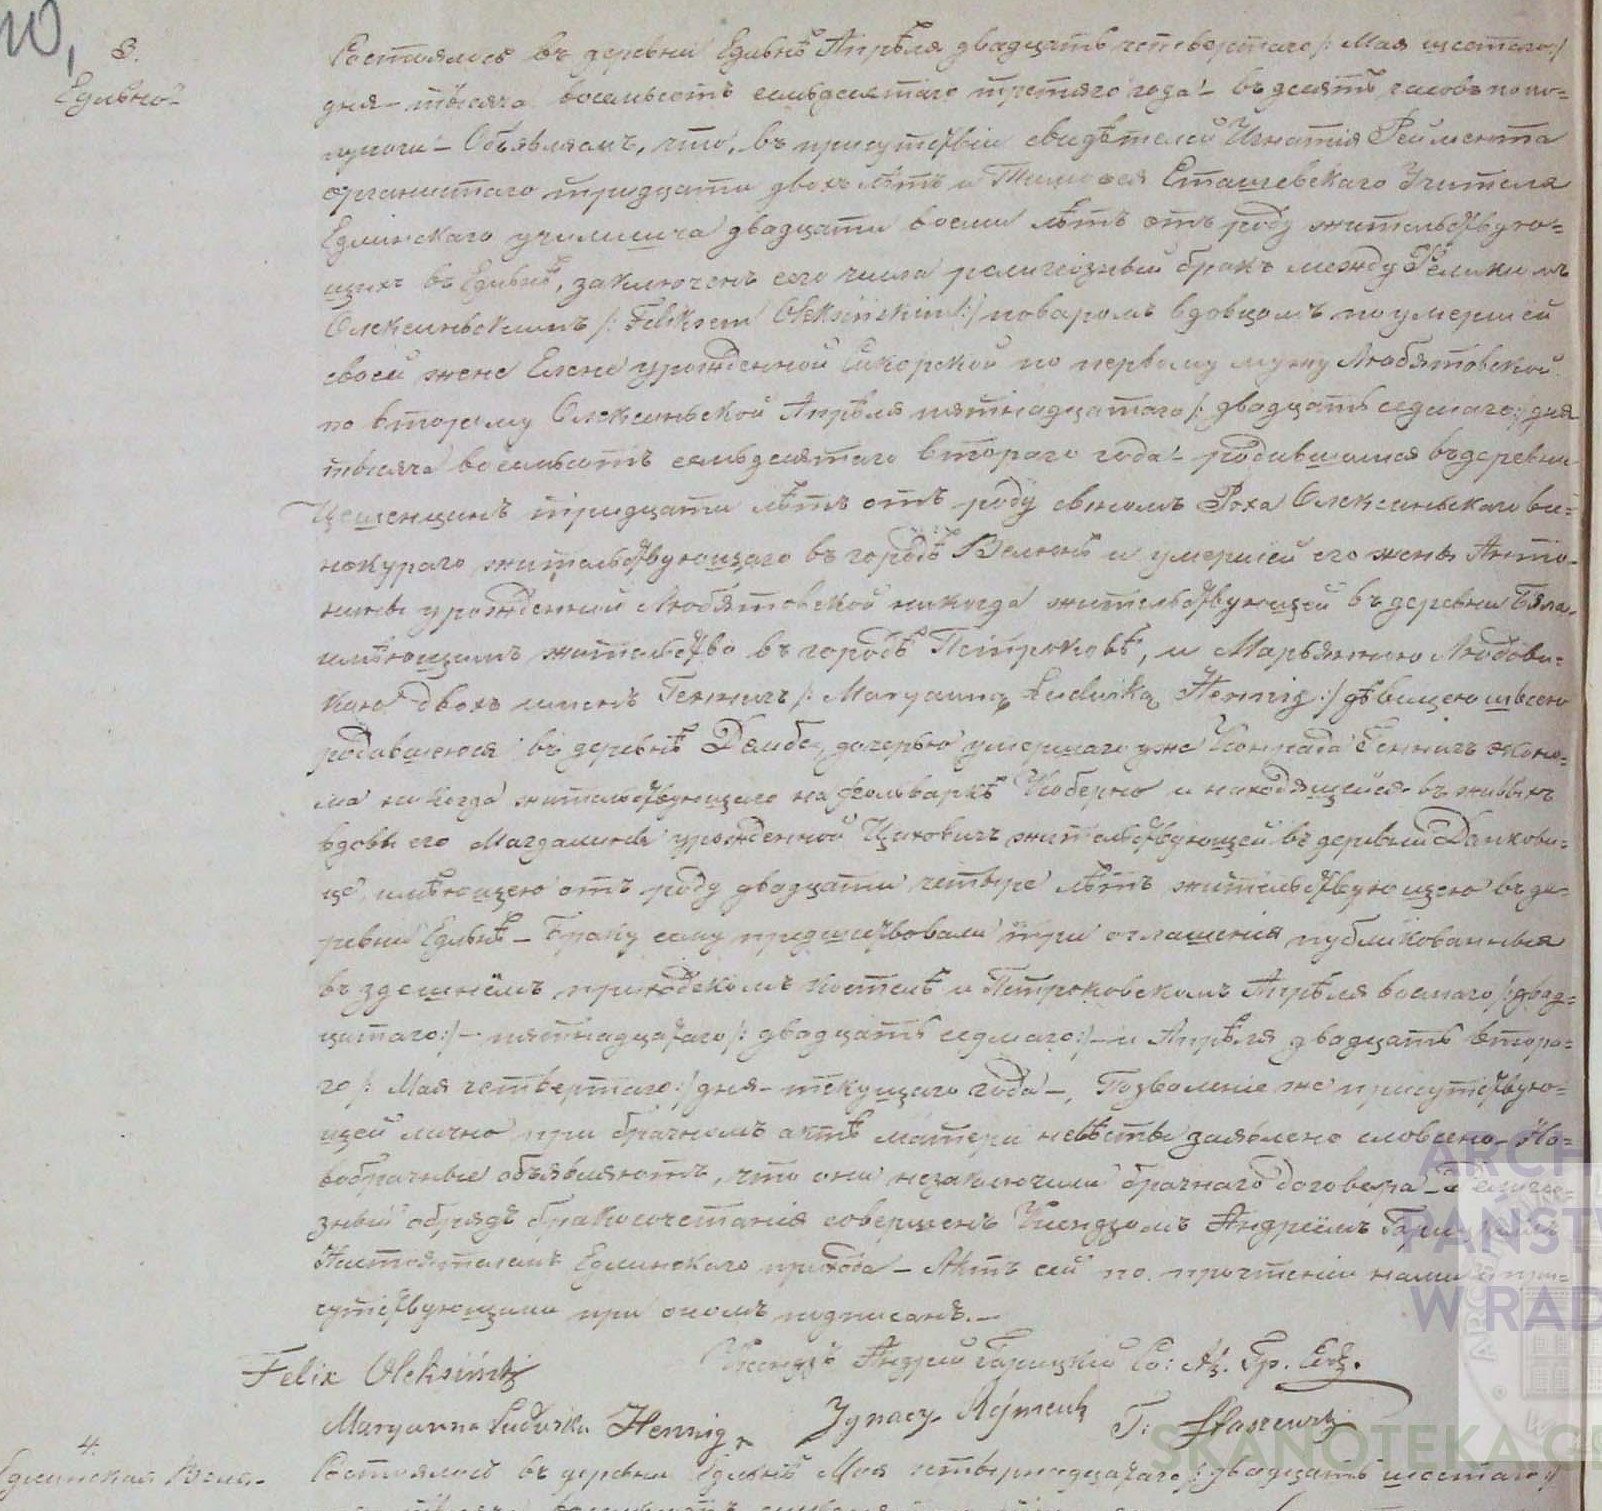 10,
3.
Едльно-
Состоялось въ деревни Едльнѣ Апрѣля двадцать четвертаго /: Мая шестаго :/
дня – тысяча восемьсотъ семьдесятаго третяго года – въ десять часовъ попо-
луночи – Объявляемъ, что, въ присутствіи свидѣтелей Игнатія Реймента
органистаго тридцати двохъ лѣтъ и Сташевскаго Учителя
Едлинскаго училища двадцати восми лѣтъ отъ роду жительствую-
щихъ въ Едльнѣ, заключенъ сего числа религіозный бракъ между Феликсомъ
Олексиньскимъ /: Feliksem Oleksińskim :/ поваромъ вдовцомъ по умершей
своей жене Елене урожденной Сикорской по первому мужу Любятовской
по второму Олексиньской Апрѣля пятнадцатаго /: двадцать седмаго :/ дня
тысяча восемьсотъ семьдесятаго втораго года – родившимся въ деревни
тридцати лѣтъ отъ роду сыномъ Роха Олексиньскаго ви-
нокураго жительствующаго въ городѣ Велюнѣ и умершей его жены Анто-
нины урожденной Любятовской никогда жительствующей въ деревни Бяла,
имѣющимъ жительство въ городѣ Петроковѣ, и Марьянною Людови-
кою двохъ именъ Геннигъ /: Maryanną Ludwiką Hennig :/ дѣвицею швеею
родившеюся въ деревнѣ Дембе, дочерью умершаго уже Конрада Геннигъ эконо-
ма никогда жительствующаго на фольваркѣ Коберно и находящейся въ живыхъ
вдовы его Магдалины урожденной жительствующей въ деревни Данкови-
це, имѣющею отъ роду двадцати четыре лѣтъ жительствующею въ де-
ревни Едльнѣ – Браку сему предшествовали три оглашенія публикованныя
въ здешнемъ приходскомъ костелѣ и Петроковскомъ Апрѣля восмаго /: двад-
цатаго :/ – пятнадцатаго /: двадцать седмаго :/ – и Апрѣля двадцать второ-
го /: Мая четвертаго :/ дня – текущаго года –, Позволеніе же присутствую-
щей лично при брачномъ актѣ матери невѣсты заявлено словесно – Но-
вобрачные объявляютъ, что они незаключили брачнаго договора – Религіо-
зный обрядъ бракосочетанія совершенъ Ксендзомъ Андреемъ
Настоятелемъ Едлинскаго прихода – Актъ сей по прочтеніи нами и при-
сутствующими при ономъ подписанъ. –
Felix Oleksiński
Ксендзъ Андрей
Maryanna Ludwika Hennig
Ignacy Rejment
T: Staszewski
4.
Едлинская Воля.
Состоялось въ деревни Едльнѣ Мая четырнадцатаго /: двадцать шестаго :/
ARCH
PAŃST
W RAD
SKANOTEKA.GE